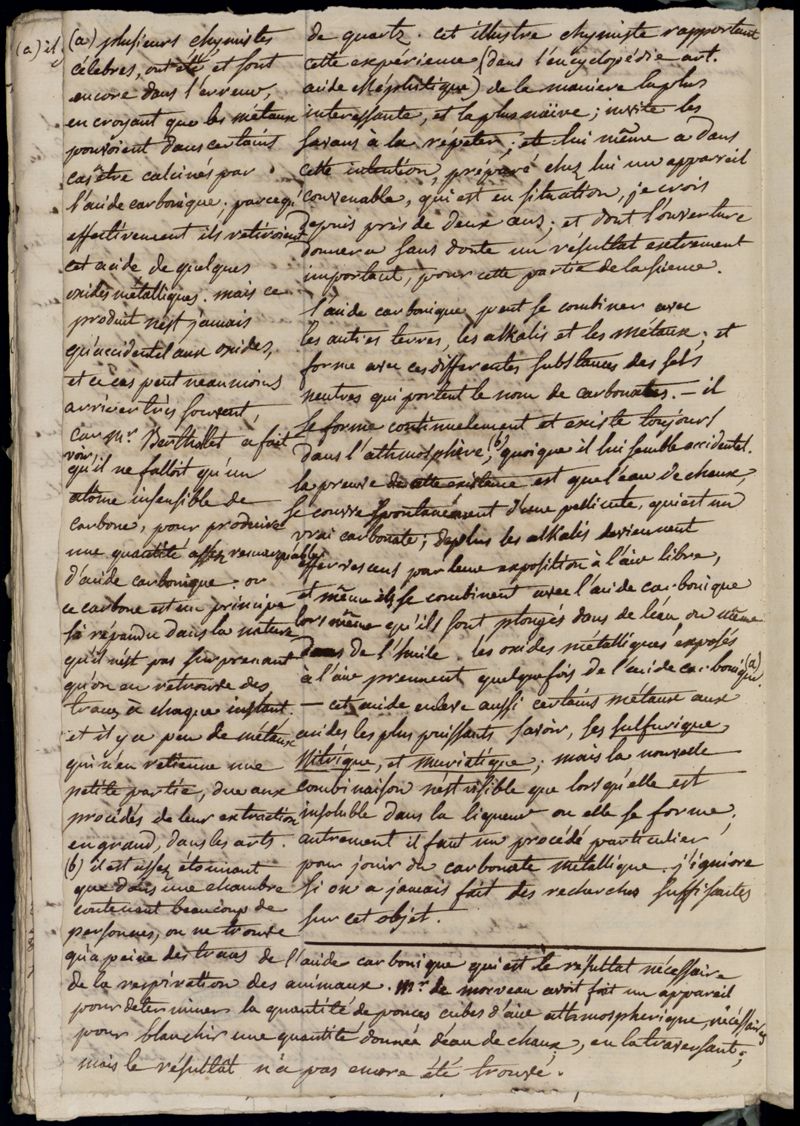 (a) il y
(a) plusieurs chymistes
célebres, ont été et sont
encore dans l'erreur,
en croyant que les métaux
pouvoient dans certains
cas être calcinés par
l'acide carbonique; parcequ'
effectivement ils retiroient
cet acide de quelques
oxides métalliques. mais ce
produit n'est jamais
qu'accidentel aux oxides,
et ce cas peut neanmoins
arriver très souvent,
car Mr. Bertholet a fait
voir
qu'il ne falloit qu'un
atôme insensible de
carbone, pour produire
une quantité assez remarquable
d'acide carbonique. or
ce carbone est un principe
si répandu dans la nature
qu'il n'est pas surprenant
qu'on en retrouve des
traces à chaque instant,
et il y a peu de métaux
qui n'en retienne une
petite partie, due aux
procédés de leur extraction
en grand, dans les arts.
(b) il est assez étonnant
que dans une chambre
contenant beaucoup de
personnes, on ne trouve
qu'a peine des traces de l'acide carbonique qui est le résultat nécessaire
de la respiration des animaux. Mr. de morveau avoit fait un appareil
pour determiner la quantité de pouces cubes d'air athmospherique, nécessaires
pour blanchir une quantité donnée d'eau de chaux, en la traversant;
mais le résultât n'a pas encore été trouvé.
de quartz. cet illustre chymiste rapportant
cette expérience (dans l'encyclopédie art.
acide Méphitique) de la maniere la plus
interessante, et la plus naïve; invite les
savans à la répeter; et lui même a dans
cette intention, préparé chez lui un appareil
convenable, qui est en situation, je crois
depuis près de deux ans; et dont l'ouverture
donnera sans doute un résultat extrement
important, pour cette partie de la sience.
l'acide carbonique peut se combiner avec
les autres terres, les alkalis et les métaux; et
forme avec ces differentes substances des sels
neutres qui portent le nom de carbonates. — il
se forme continuelement et existe toujours
dans l'athmosphère, (b) quoique il lui semble accidentel.
la preuve de cette existence est que l'eau de chaux,
se couvre spontanément d'une pellicule, qui est un
vrai carbonate; deplus les alkalis deviennent
effervescens par leur exposition à l'air libre,
et même ils se combinent avec l'acide carbonique
lors même qu'ils sont plongés dans de l'eau, ou même
dans de l'huile. les oxides métalliques exposés
à l'air prennent quelquefois de l'acide carbonique (a).
— cet acide enleve aussi certains métaux aux
acides les plus puissants savoir, les sulfurique,
Nitrique, et muriatique; mais la nouvelle
combinaison n'est visible que lorsqu'elle est
insoluble dans la liqueur ou elle se forme;
autrement il faut un procédé particulier
pour jouir du carbonate métallique. j'ignore
si on a jamais fait des recherches suffisantes
sur cet objet.